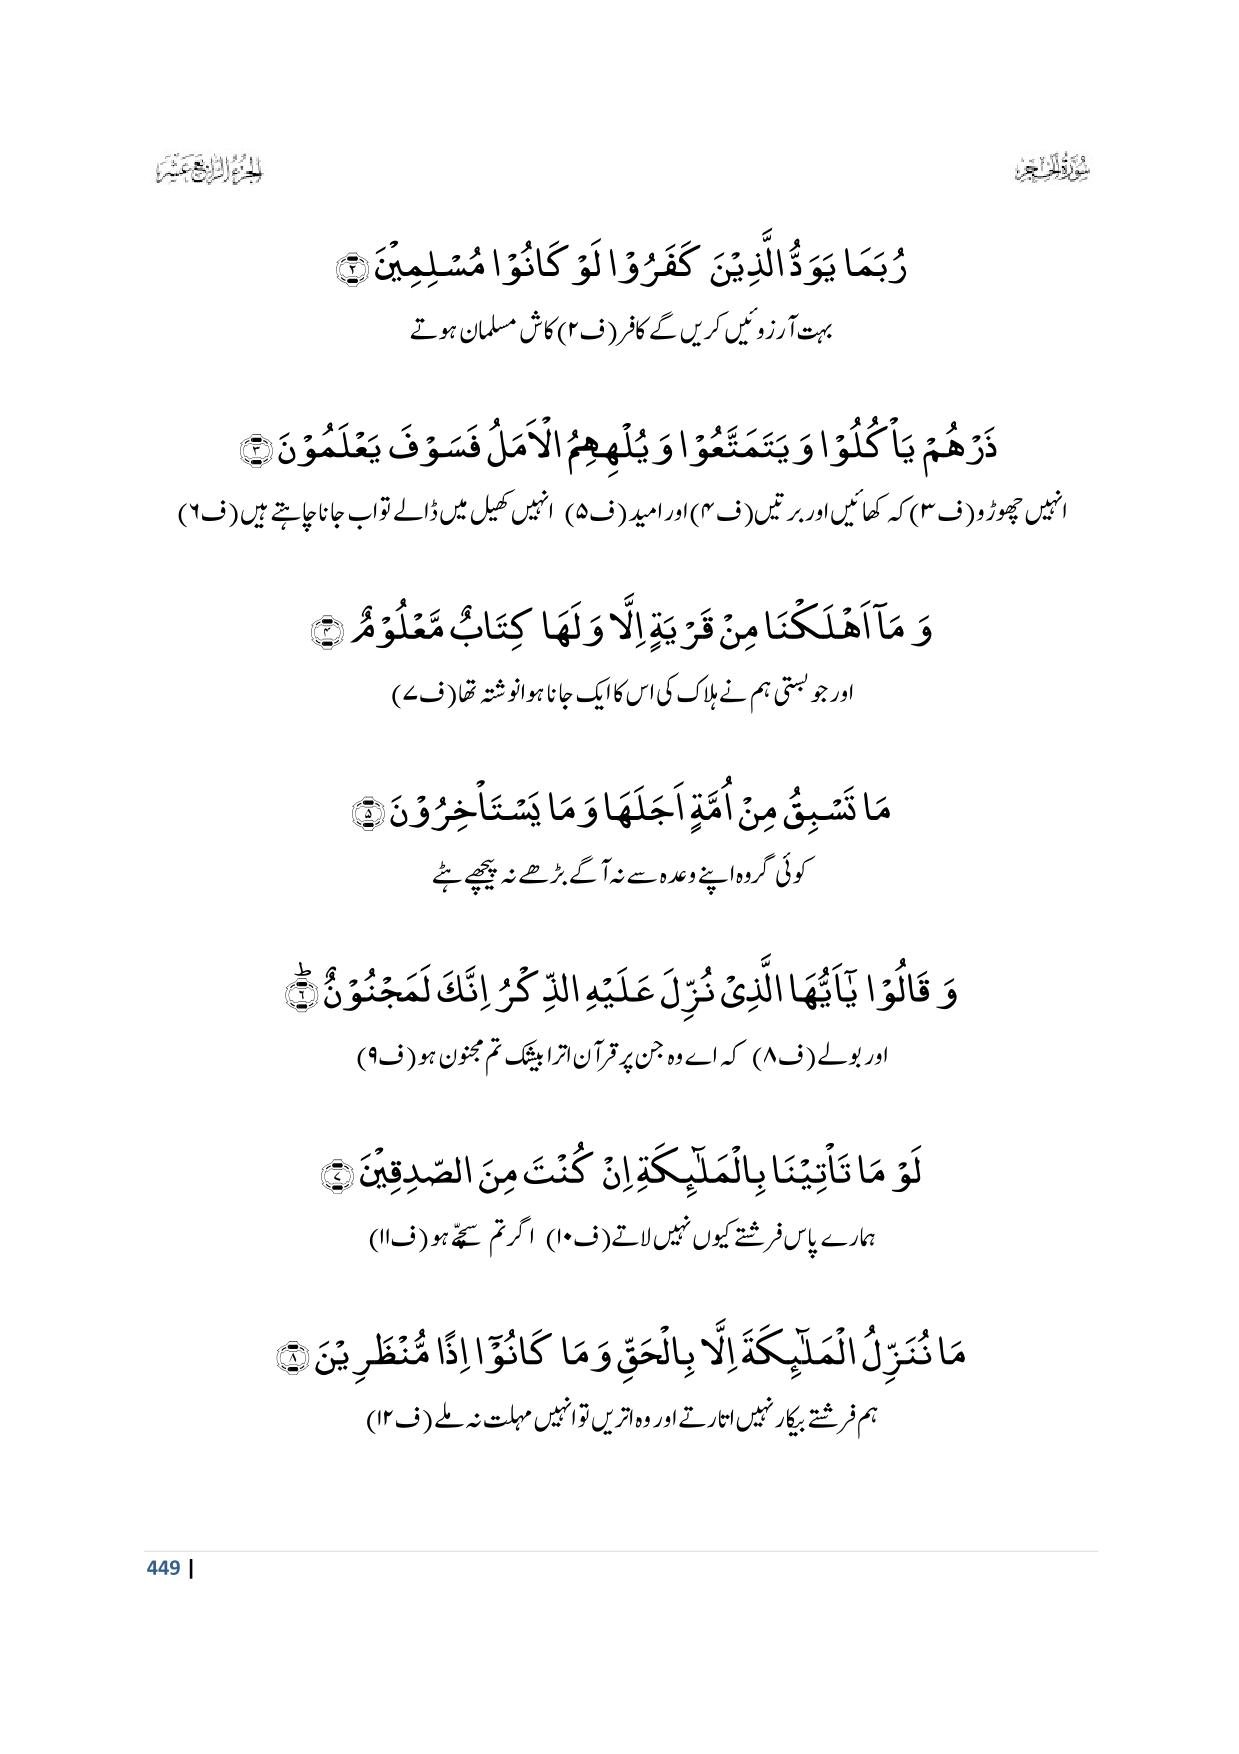 سُوْرَةُ الْحِجْر
الجزء الرابع عشر
رُبَمَا یَوَدُّ الَّذِیْنَ كَفَرُوْا لَوْ كَانُوْا مُسْلِمِیْنَ ﴿۲﴾
بہت آرزوئیں کریں گے کافر (ف۲) کاش مسلمان ہوتے
ذَرْهُمْ یَاْكُلُوْا وَ یَتَمَتَّعُوْا وَ یُلْهِهِمُ الْاَمَلُ فَسَوْفَ یَعْلَمُوْنَ ﴿۳﴾
انہیں چھوڑو (ف۳) کہ کھائیں اور برتیں (ف۴) اور امید (ف۵) انہیں کھیل میں ڈالے تو اب جانا چاہتے ہیں (ف۶)
وَ مَاۤ اَهْلَكْنَا مِنْ قَرْیَةٍ اِلَّا وَ لَهَا كِتَابٌ مَّعْلُوْمٌ ﴿۴﴾
اور جو بستی ہم نے ہلاک کی اس کا ایک جانا ہوا نوشتہ تھا (ف۷)
مَا تَسْبِقُ مِنْ اُمَّةٍ اَجَلَهَا وَ مَا یَسْتَاْخِرُوْنَ ﴿۵﴾
کوئی گروہ اپنے وعدہ سے نہ آگے بڑھے نہ پیچھے ہٹے
وَ قَالُوْا یٰۤاَیُّهَا الَّذِیْ نُزِّلَ عَلَیْهِ الذِّكْرُ اِنَّكَ لَمَجْنُوْنٌ ﴿۶﴾ؕ
اور بولے (ف۸) کہ اے وہ جن پر قرآن اترا بیشک تم مجنون ہو (ف۹)
لَوْ مَا تَاْتِیْنَا بِالْمَلٰٓىٕكَةِ اِنْ كُنْتَ مِنَ الصّٰدِقِیْنَ ﴿۷﴾
ہمارے پاس فرشتے کیوں نہیں لاتے (ف۱۰) اگر تم سچّے ہو (ف۱۱)
مَا نُنَزِّلُ الْمَلٰٓىٕكَةَ اِلَّا بِالْحَقِّ وَ مَا كَانُوْۤا اِذًا مُّنْظَرِیْنَ ﴿۸﴾
ہم فرشتے بیکار نہیں اتارتے اور وہ اتریں تو انہیں مہلت نہ ملے (ف۱۲)
449 |